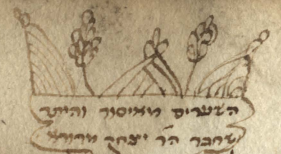 השערים מאיסור והיתר
שחבר הר' יצחק מדורא